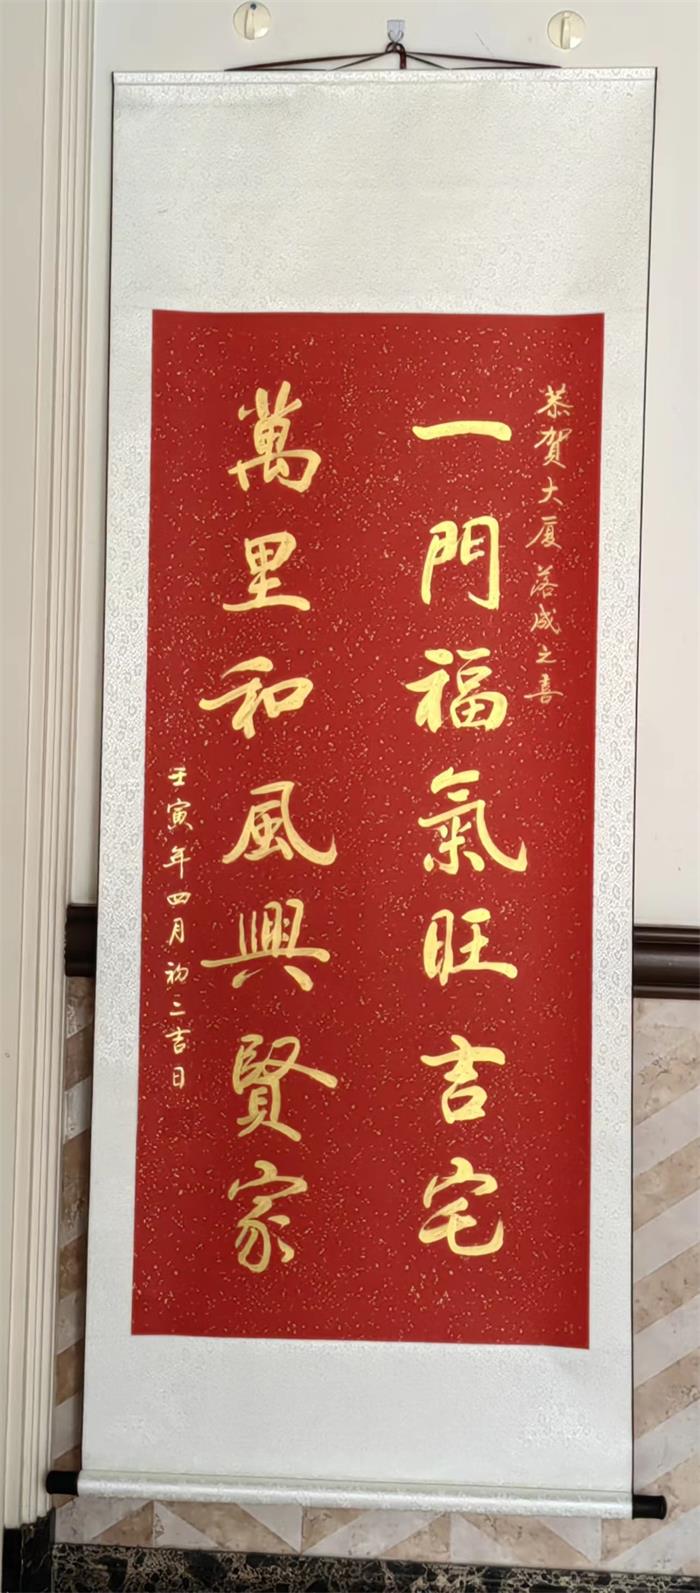 恭賀大厦落成之喜
一門福氣旺吉宅
萬里和風興賢家
壬寅年四月初二吉日